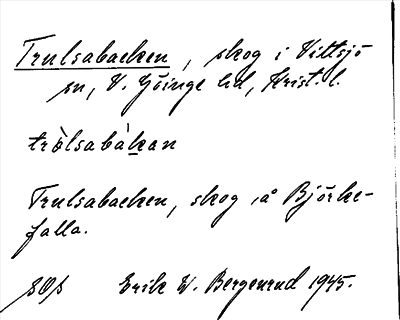 Trulsabacken, skog i Vittsjö
sn, V. Göinge hd, Krist. l.
tròlsabàkan
Trulsabacken, skog å Björke-
falla.
Erik W. Bergenrud 1945.